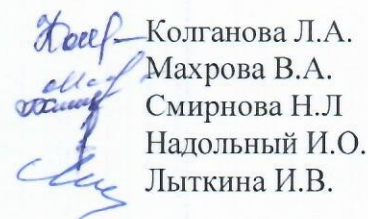 Колганова Л.А.
Махрова В.А.
Смирнова Н.Л
Надольный И.О.
Лыткина И.В.